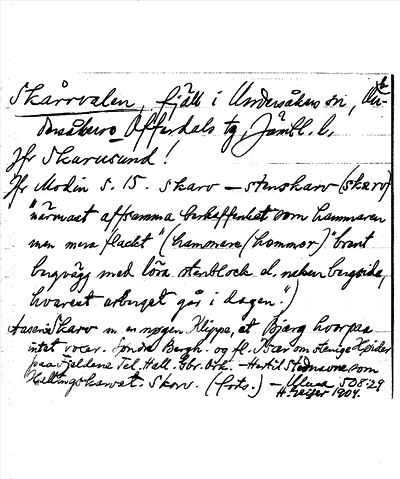 Skårvalen, fjäll i Undersåkers sn, Un-
dersåkers o Offerdals tg, Jämtl. l.
Jfr Skarusund!
Jfr Modin s. 15. skarv – stenskarv (skærv)
"närmast af samma beskaffenhet som hammaren
men mera flackt" (hammare/hommor) "brant
bergvägg med lösa stenblock el. naken bergsida,
hvarest urberget går i dagen".)
Aasen: Skarv m. en nøgen Klippe, et Bjærg hvorpaa
intet voxer. Søndre Bergh. og fl. Især om stenige Høider
paa Fjeldene Tel. Hall. Gbr. Ork. – Hertil Stednavne som
Hallingskarvet. Skorv. (forts.) – Ulma 508:29
H. Geijer 1904.